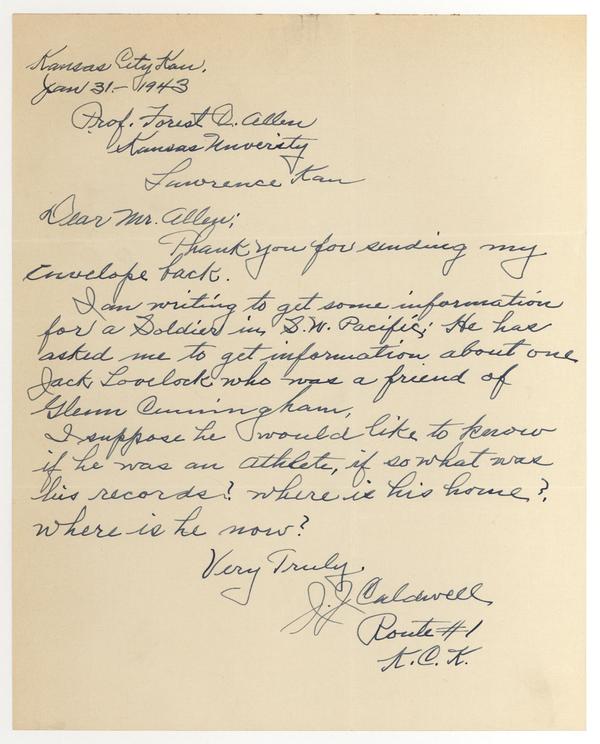 Kansas City Kan.
Jan 31 - 1943
Prof. Forest D. Allen
Kansas Unversity
Lawrence Kan
Dear Mr. Allen;
Thank you for sending my
envelope back.
I am writing to get some information
for a Soldier in S.W. Pacific; He has
asked me to get information about one
Jack Lovelock who was a friend of
Glenn Cunningham.
I suppose he would like to know
if he was an athlete, if so what was
his records? where is his home?
where is he now?
Very Truly,
J.J. Caldwell
Route #1
K.C.K.